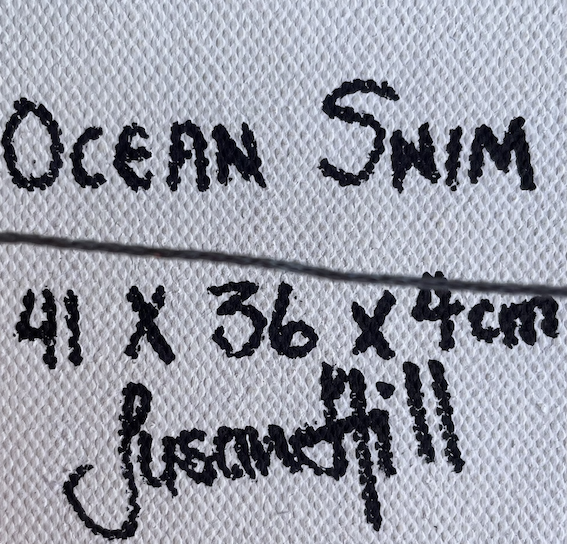 OCEAN SWIM
41 X 36 X 4cm
Hill